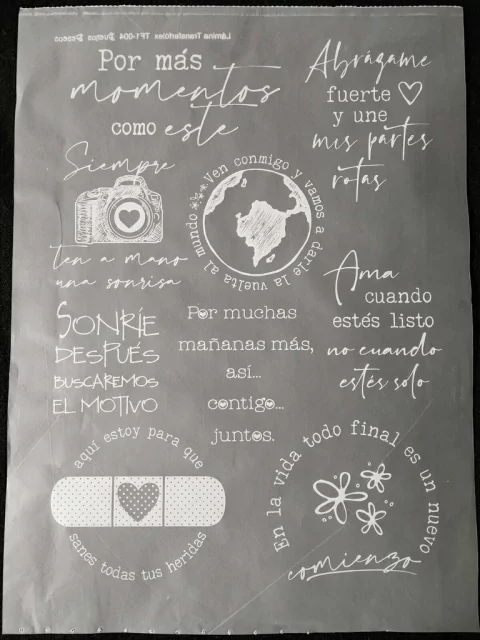 Lámina Transferfólex TF1-004 Buenos Deseos
Por más
momentos
como este
Abrázame
fuerte
y une
mis partes
rotas
Siempre
ten a mano
una sonrisa
Ven conmigo y vamos a darle la vuelta al mundo
Ama
cuando
estés listo
no cuando
estés solo
SONRÍE
DESPUÉS
BUSCAREMOS
EL MOTIVO
Por muchas
mañanas más,
así...
contigo...
juntos.
aquí estoy para que
sanes todas tus heridas
En la vida todo final es un nuevo
comienzo